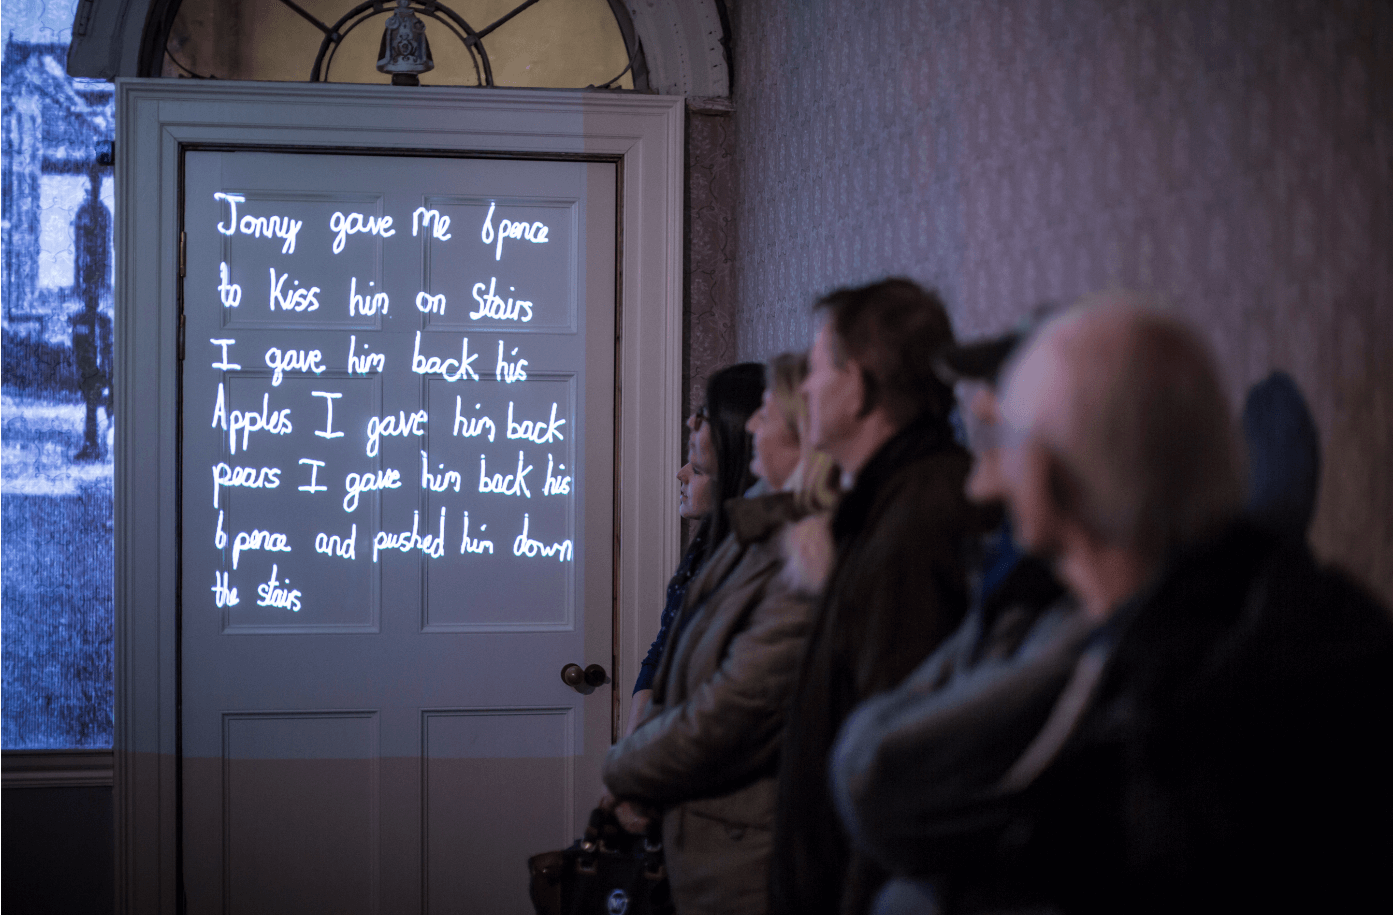 Jonny gave Me 6pence
to Kiss him on Stairs
I gave him back his
Apples I gave him back
pears I gave him back his
6pence and pushed him down
the stairs